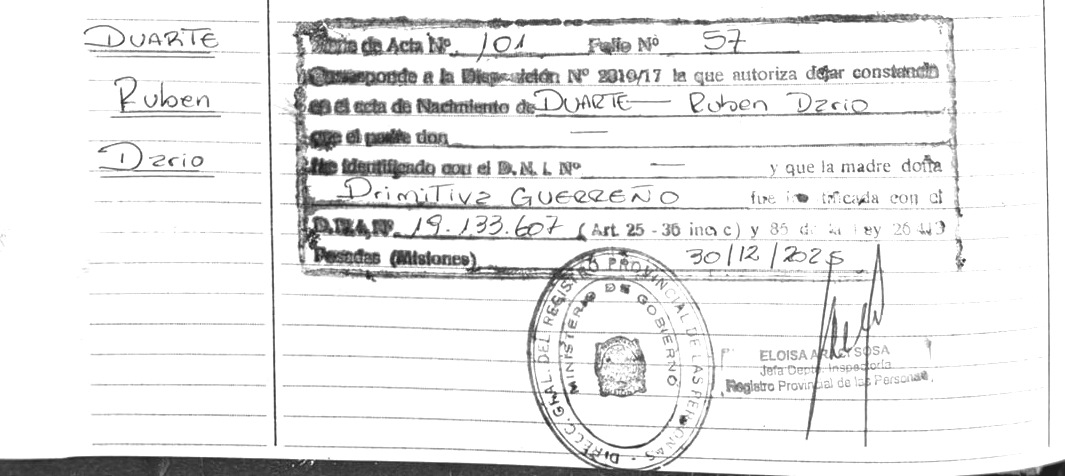 DUARTE
Ruben
Dario
de Acta Nº 101 Folio Nº 57
Corresponde a la Disposición Nº 2010/17 la que autoriza dejar constancia
en el acta de Nacimiento de DUARTE — Ruben Dario
que el padre don —
fue identificado con el D. N. I. Nº — y que la madre doña
Primitiva GUERREÑO fue identificada con el
D.N.I. Nº 19.133.607 (Art. 25 - 36 inc. c) y 85 de la Ley 26413
Posadas (Misiones) 30/12/2025
DIRECC. GRAL. DEL REGISTRO PROVINCIAL DE LAS PERSONAS
MINISTERIO DE GOBIERNO
ELOISA ARACI SOSA
Jefa Depto. Inspectoria
Registro Provincial de las Personas